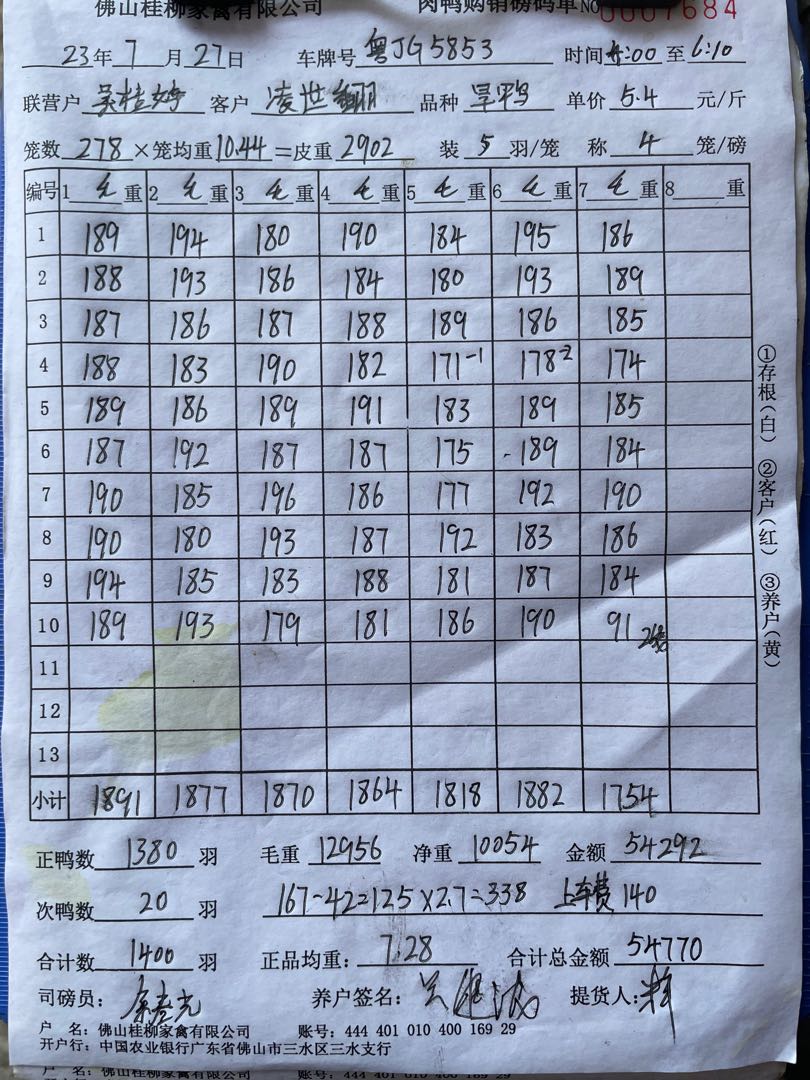 佛山桂柳家禽有限公司 肉鸭购销磅码单 NO 0007684
23年7月27日 车牌号 粤JG5853 时间 4:00 至 6:10
联营户 吴桂婷 客户 凌世翻 品种 旱鸭 单价 5.4 元/斤
笼数 278 ×笼均重 10.44 =皮重 2902 装 5 羽/笼 称 4 笼/磅
编号 1 毛 重 2 毛 重 3 毛 重 4 毛 重 5 毛 重 6 毛 重 7 毛 重 8 重
1 189 194 180 190 184 195 186
2 188 193 186 184 180 193 189
3 187 186 187 188 189 186 185
4 188 183 190 182 171-1 178-2 174
5 189 186 189 191 183 189 185
6 187 192 187 187 175 189 184
7 190 185 196 186 177 192 190
8 190 180 193 187 192 183 186
9 194 185 183 188 181 187 184
10 189 193 179 181 186 190 91
11
12
13
小计 1891 1877 1870 1864 1818 1882 1754
正鸭数 1380 羽 毛重 12956 净重 10054 金额 54292
次鸭数 20 羽 167-42=125×2.7=338 上车费 140
合计数 1400 羽 正品均重: 7.28 合计总金额 54770
司磅员: 养户签名: 提货人:
户 名: 佛山桂柳家禽有限公司 账号: 444 401 010 400 169 29
开户行: 中国农业银行广东省佛山市三水区三水支行
户 名: 佛山桂柳家禽有限公司
①存根(白) ②客户(红) ③养户(黄)